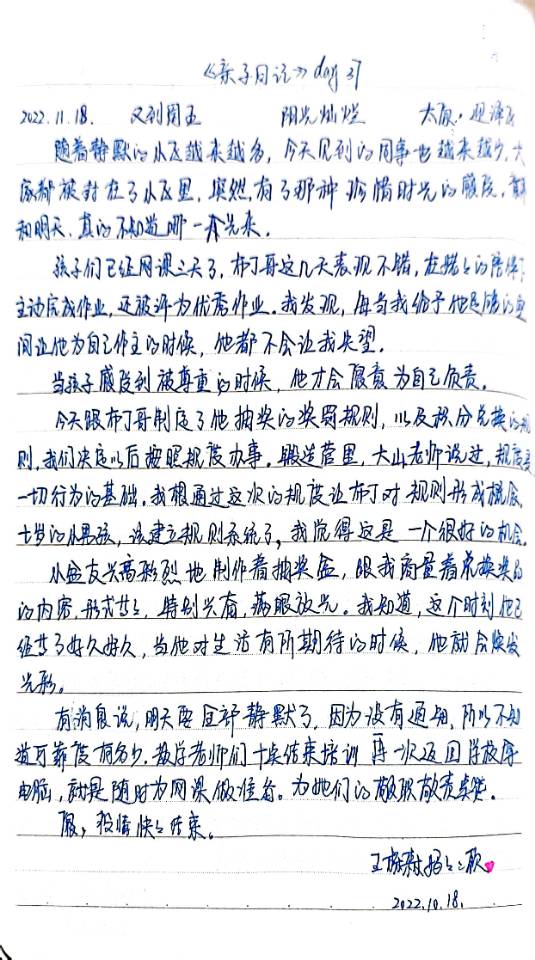 《亲子日记》day 37
2022.11.18. 又到周五 阳光灿烂 太原·迎泽区
随着静默的小区越来越多,今天见到的同事也越来越少,大
家都被封在了小区里,突然,有了那种珍惜时光的感段,意外
和明天,真的不知道哪一个先来。
孩子们已经网课三天了,布丁哥这几天表现不错,在姥姥的陪伴下
主动完成作业,还被评为优秀作业。我发现,每当我给予他足够的空
间让他为自己作主的时候,他都不会让我失望。
当孩子感段到被尊重的时候,他才会愿意为自己负责。
今天跟布丁哥制定了他抽奖的奖罚规则,以及积分兑换的规
则,我们决定以后按照规度办事。锻造营里,大山老师说过,规度是
一切行为的基础。我想通过这次的规度让布丁对规则形成概念,
十岁的小男孩,该建立规则系统了,我觉得这是一个很好的机会。
小盆友兴高彩烈地制作着抽奖盒,跟我商量着兑换奖品
的内容,形式等等,特别兴奋,满眼放光。我知道,这个时刻他已
经等了好久好久,当他对生活有所期待的时候,他就会焕发
光彩。
有消息说,明天要全部静默了,因为没有通知,所以不知
道可靠度有多少。数学老师们十点结束培训再一次返回学校拿
电脑,就是随时为网课做准备。为她们的敬职敬责点赞。
愿,疫情快快结束。
妈妈:
2022.10.18.